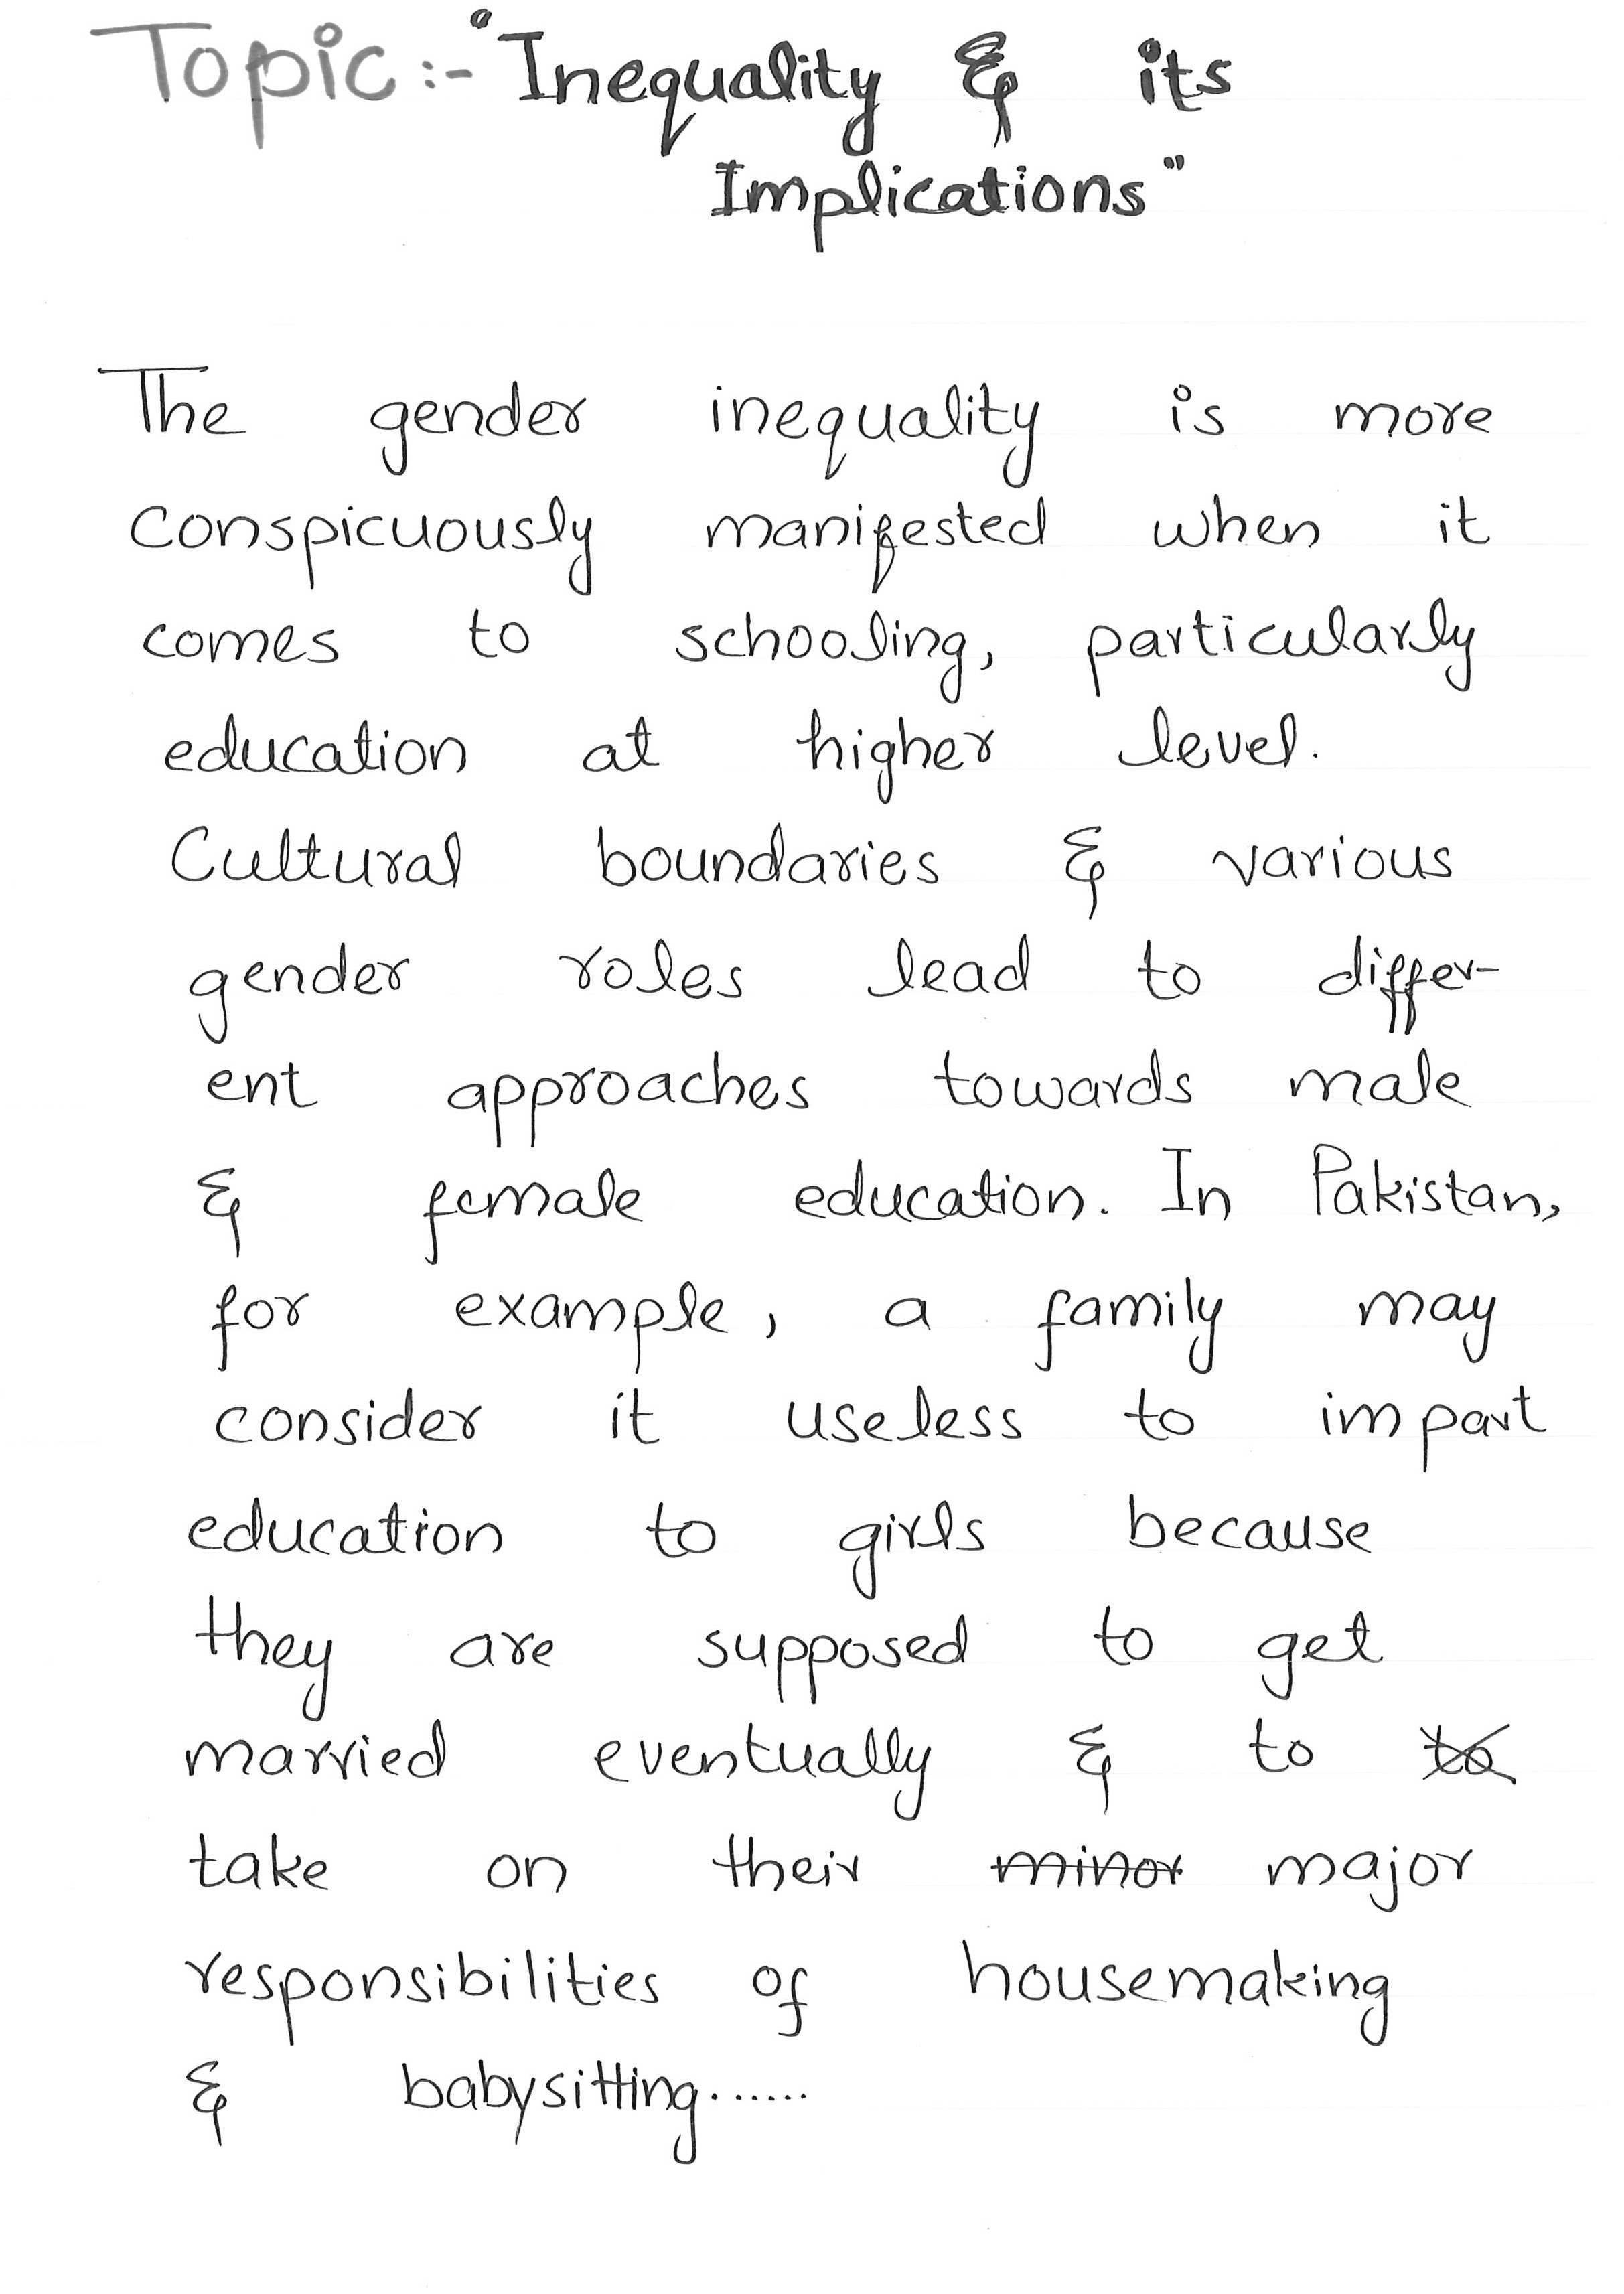 Topic:- "Inequality & its
Implications"
The gender inequality is more
conspicuously manifested when it
comes to schooling, particularly
education at higher level.
Cultural boundaries & various
gender roles lead to differ-
ent approaches towards male
& female education. In Pakistan,
for example, a family may
consider it useless to impart
education to girls because
they are supposed to get
married eventually & to to
take on their minor major
responsibilities of housemaking
& babysitting......